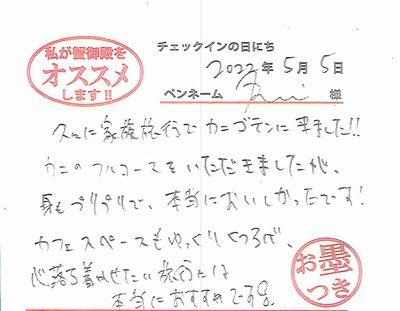 私が蟹御殿を
オススメ
します!!
チェックインの日にち
2022年5月5日
ペンネーム 様
久々に家族旅行でカニゴテンに来ました!!
カニのフルコースをいただきましたが、
身もプリプリで、本当においしかったです!
カフェスペースもゆっくりくつろげ、
心落ち着かせたい旅行には
本当におすすめです。
お墨
つき